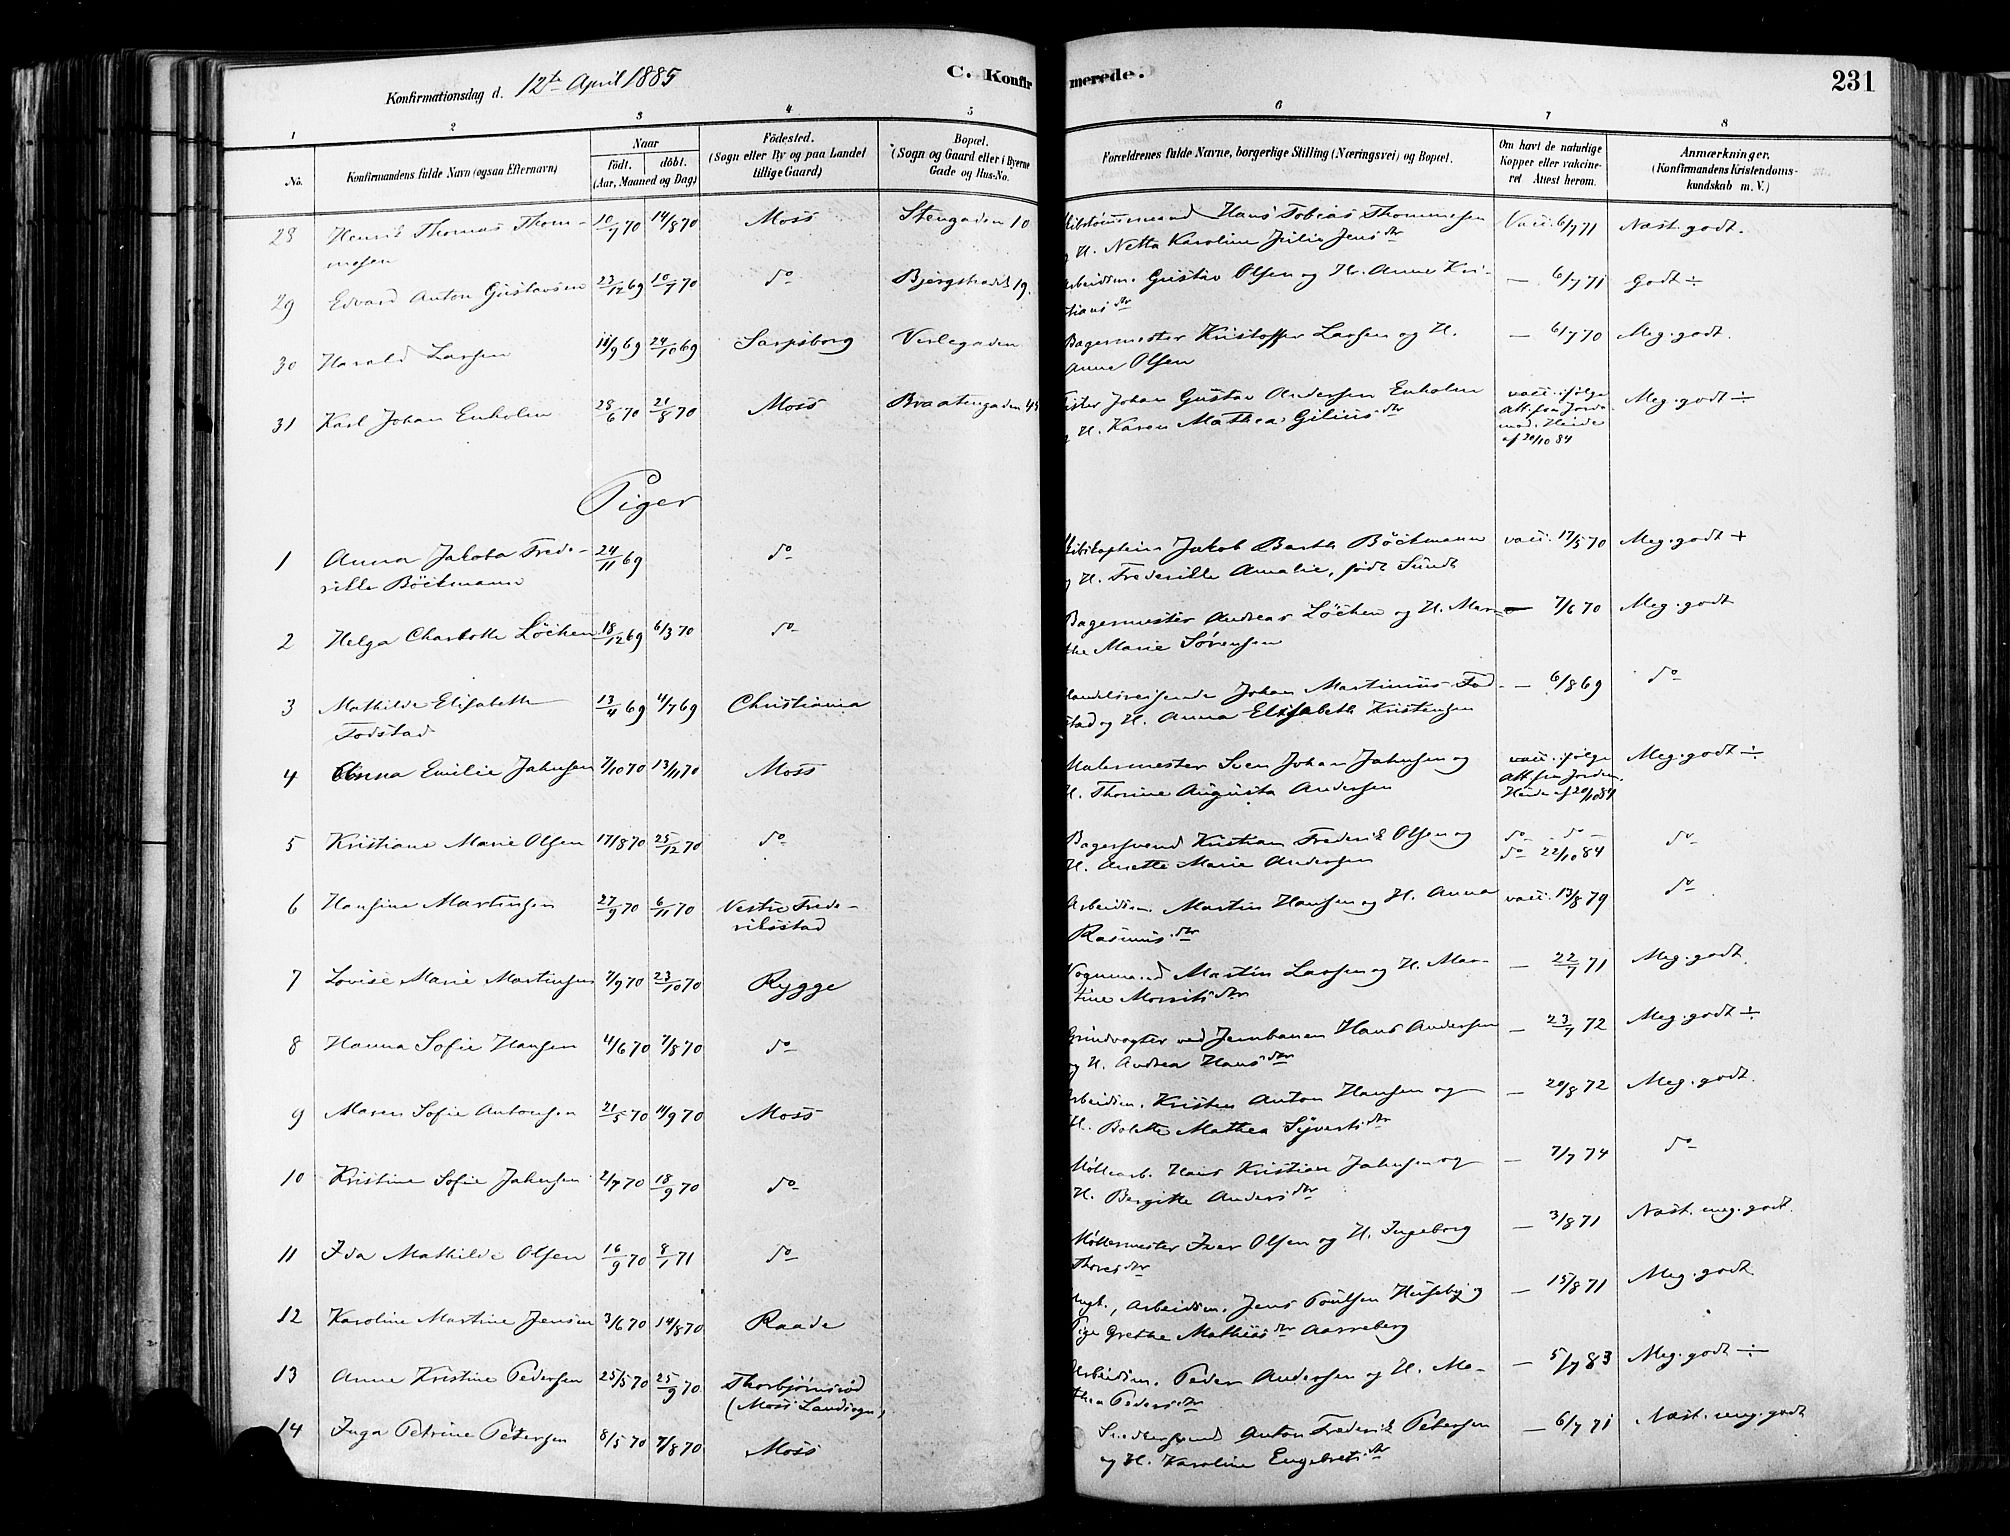 Konfirmationsdag d. 12te April 1885
C. Konfirmerede.
231
1 2 3 4 5 6 7 8
No.
Konfirmandens fulde Navn (ogsaa Efternavn)
Naar
födt. döbt.
(Aar, Maaned og Dag)
Födested.
(Sogn eller By og paa Landet
tillige Gaard)
Bopæl.
(Sogn og Gaard eller i Byerne
Gade og Hus-No.
Forældrenes fulde Navne, borgerlige Stilling (Næringsvei) og Bopæl.
Om havt de naturlige
Kopper eller vakcine-
ret Attest herom.
Anmærkninger.
(Konfirmandens Kristendoms-
kundskab m. V.)
28 Henrik Thomas Thom- 10/7 70 14/8 70 Moss Stengaden 10 Hans Tobias Thommesen Vacc. 6/7 71 Næst. godt.
mesen H. Netta Karoline Julie Jensdtr
29 Edvard Anton Gustavsen 23/12 69 10/7 70 do 19. Arbeidsm. Gustav Olsen og H. Anne Kri- — 6/7 71 Godt ÷
stiansdtr
30 Harald Larsen 11/9 69 24/10 69 Sarpsborg Verlegaden Bagermester Kristoffer Larsen og H. — 6/7 70 Meg. godt.
Anne Olsen
31 Karl Johan Enholm 28/6 70 21/8 70 Moss Braatengaden Johan Gustav Andersen Enholm vacc. ifølge Meg. godt ÷
H. Karen Mathea Giliusdtr Att. fra Jorde-
mod. Heide
af 20/10 84
Piger
1 Anna Jakoba Frede- 24/11 69 do Jakob Barth Böckmann vacc. 17/5 70 Meg. godt +
rikke Böckmann H. Frederikke Amalie, født Sundt
2 Helga Charlotte Löchen 18/12 69 6/3 70 do Bagermester Andreas Löchen og H. Mar- — 7/6 70 Meg. godt
the Marie Sørensen
3 Mathilde Elisabeth 13/4 69 4/7 69 Christiania Handelsreisende Johan Martinius Fod- — 6/8 69 do
Fodstad stad og H. Anna Elisabeth Kristensen
4 Anna Emilie Jahnsen 7/10 70 13/11 70 Moss Malermester Sven Johan Jahnsen og vacc. ifølge Meg. godt ÷
H. Thorine Augusta Andersen Att. fra Jordm.
Heide af 20/10 84
5 Kristiane Marie Olsen 17/8 70 25/12 70 do Bagersvend Kristian Frederik Olsen og do do do
H. Anette Marie Andersen do 22/10 84
6 Hansine Martinsen 27/9 70 6/11 70 Vestre Frede- Arbeidsm. Martin Hansen og H. Anna vacc. 13/8 79 do
rikstad Rasmusdtr
7 Lovise Marie Martinsen 7/9 70 23/10 70 Rygge Vognmand Martin Larsen og H. Mar- — 22/7 71 Meg. godt
tine Moritsdtr
8 Hanna Sofie Hansen 4/6 70 7/8 70 do Grindvogter ved Jernbanen Hans Andersen — 23/7 72 Meg. godt ÷
og H. Andrea Hansdtr
9 Maren Sofie Antonsen 21/5 70 11/9 70 Moss Arbeidsm. Kristen Anton Hansen og — 20/8 72 Meg. godt.
H. Bolette Mathea Syvertsdtr
10 Kristine Sofie Jahnsen 2/7 70 18/9 70 do Møllearb. Hans Kristian Jahnsen og — 7/7 74 do
H. Bergitte Andersdtr
11 Ida Mathilde Olsen 16/9 70 8/1 71 do Møllermester Iver Olsen og H. Ingeborg — 3/8 71 Næst. meg. godt.
Thoresdtr
12 Karoline Martine Jensen 3/6 70 14/8 70 Raade Ungk., Arbeidsm. Jens Poulsen Huseby og — 15/8 71 Meg. godt
Pige Grethe Mathiasdtr Aarreberg
13 Anne Kristine Pedersen 25/5 70 25/9 70 Thorbjørnsrød Arbeidsm. Peder Andersen og H. Ma- — 5/7 83 Meg. godt ÷
(Moss Landsogn) thea Pedersdtr
14 Inga Petrine Petersen 8/5 70 7/8 70 Moss Anton Frederik Petersen — 6/7 71 Næst. meg. godt
og H. Karoline Engebretsdtr